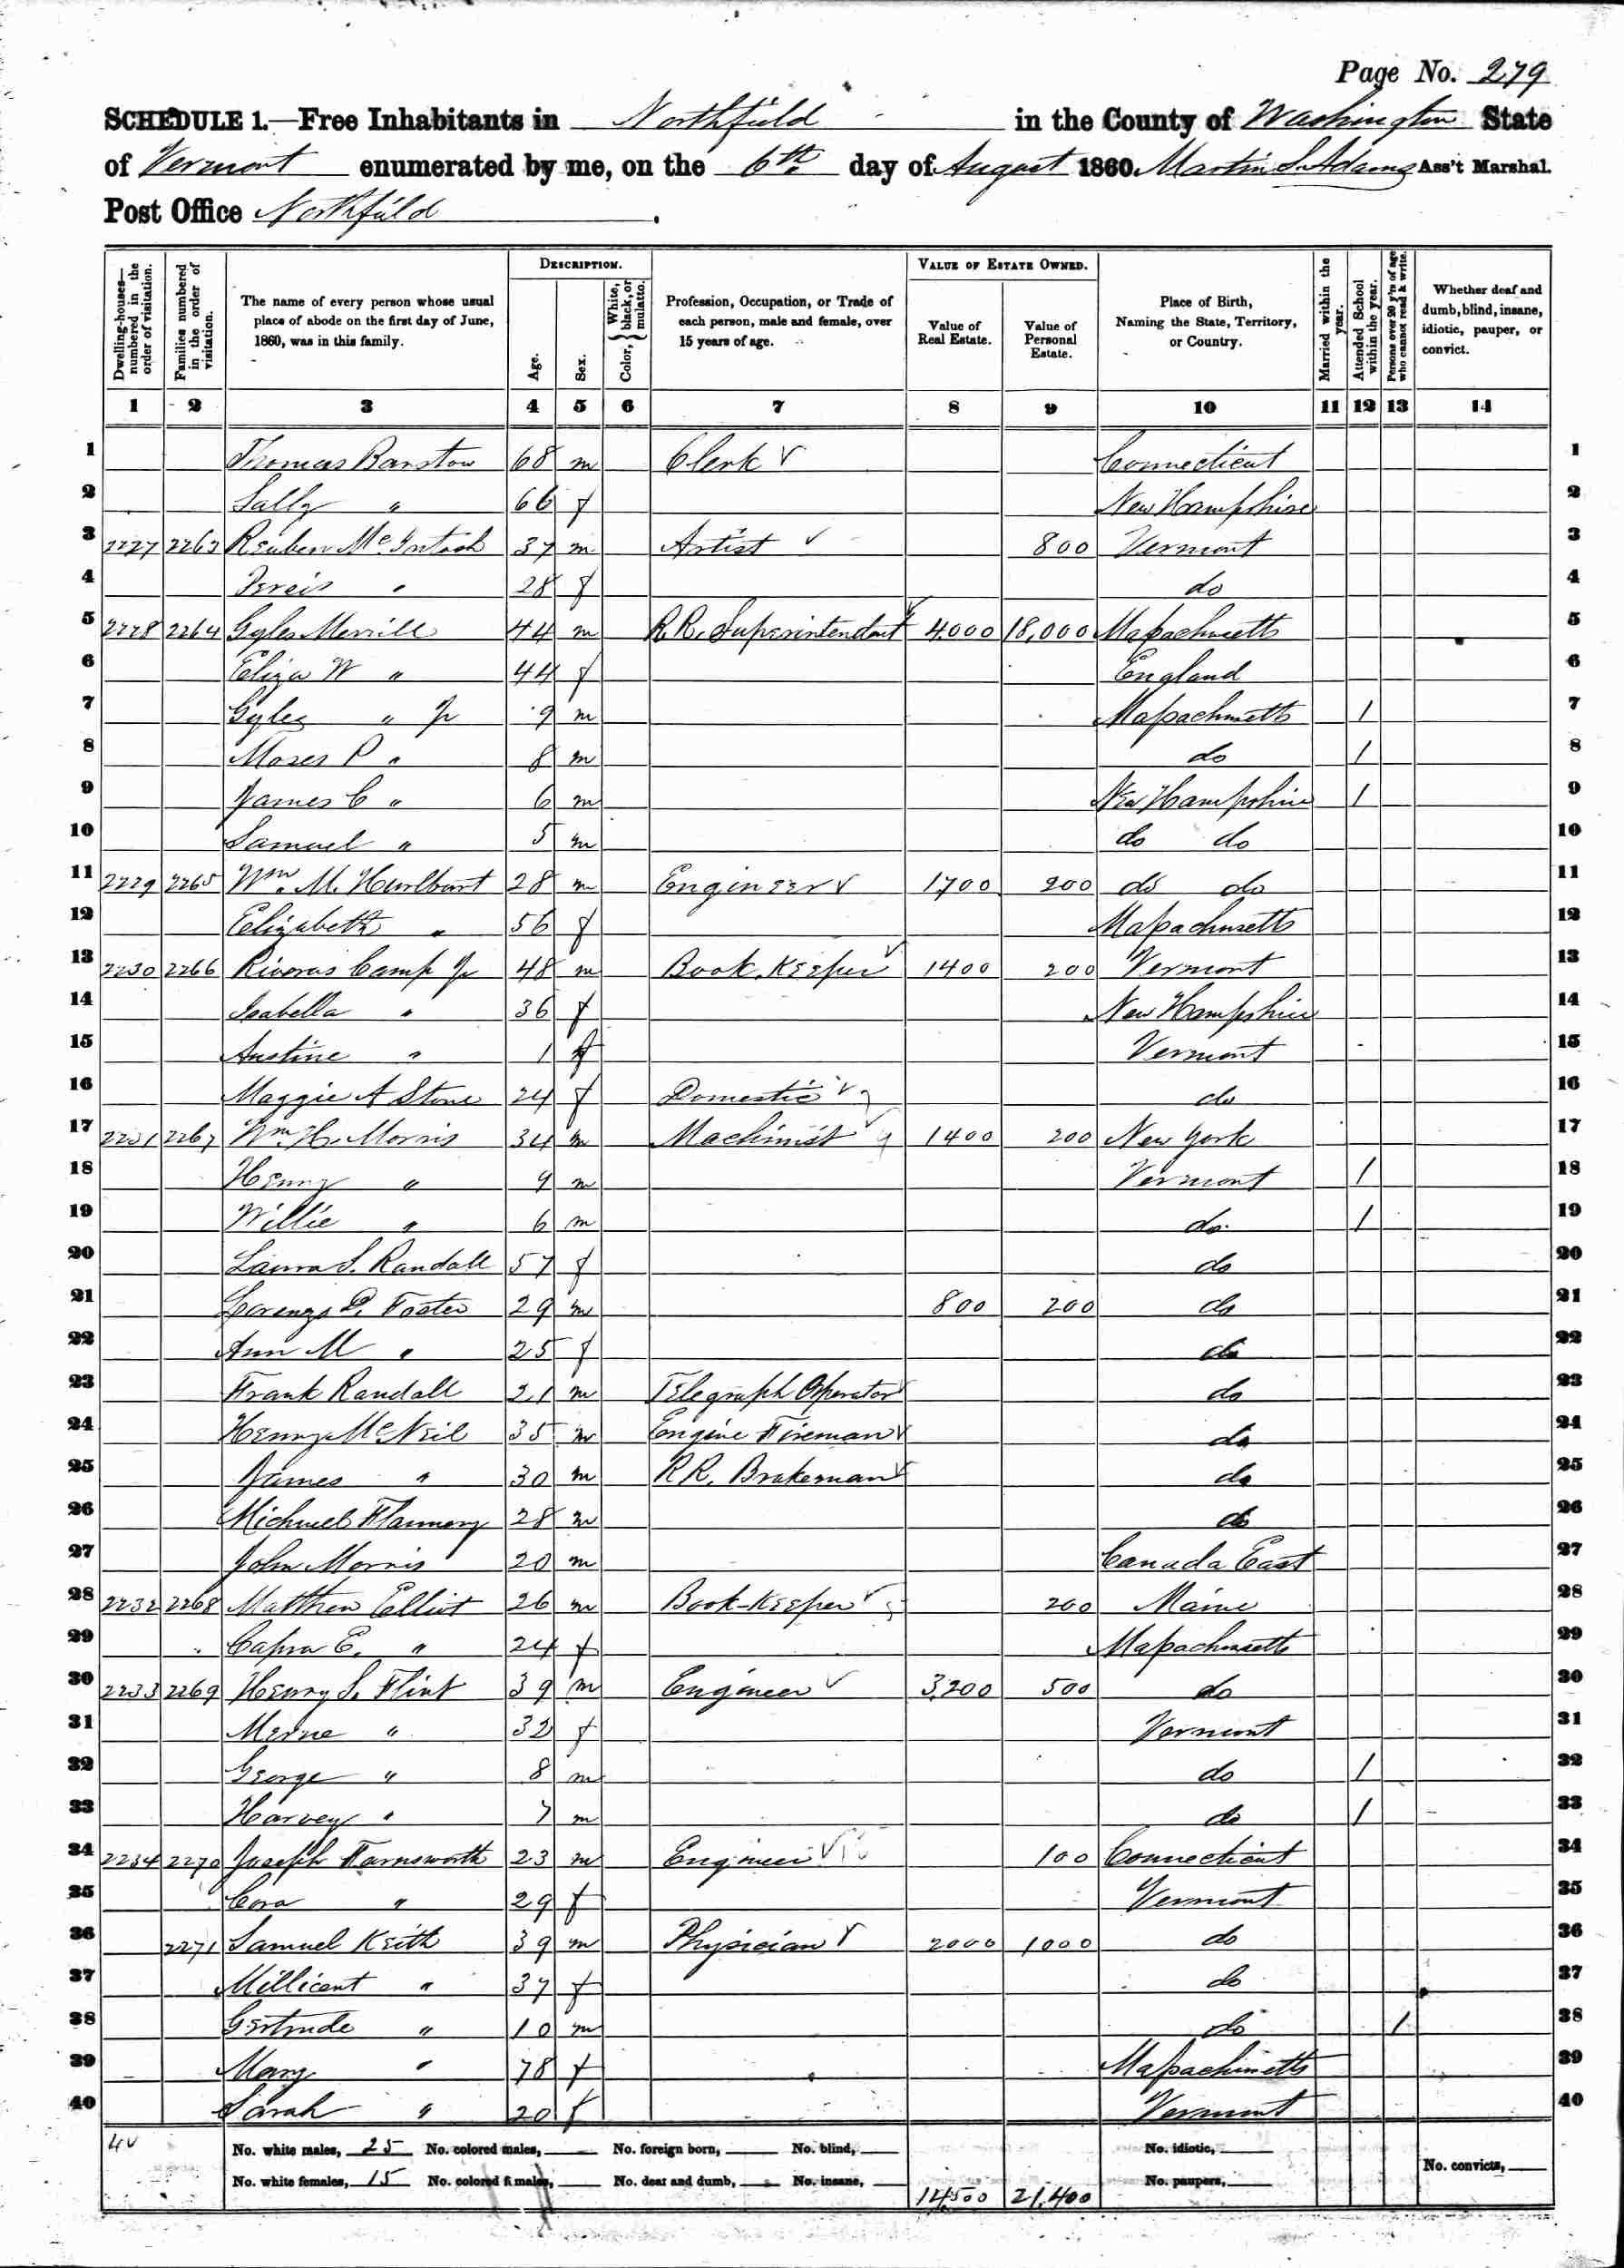 Page No. 279
SCHEDULE 1.—Free Inhabitants in Northfield in the County of Washington State
of Vermont enumerated by me, on the 6th day of August 1860. Martin S. Adams Ass't Marshal.
Post Office Northfield.
Dwelling-houses—numbered in the order of visitation. Families numbered in the order of visitation. The name of every person whose usual place of abode on the first day of June, 1860, was in this family. DESCRIPTION. Age. Sex. Color, { White, black, or mulatto. Profession, Occupation, or Trade of each person, male and female, over 15 years of age. VALUE OF ESTATE OWNED. Value of Real Estate. Value of Personal Estate. Place of Birth, Naming the State, Territory, or Country. Married within the year. Attended School within the year. Persons over 20 y'rs of age who cannot read & write. Whether deaf and dumb, blind, insane, idiotic, pauper, or convict.
1 2 3 4 5 6 7 8 9 10 11 12 13 14
1 Thomas Barstow 68 m Clerk Connecticut 1
2 Sally " 66 f New Hampshire 2
3 2227 2263 Reuben McIntosh 37 m Artist 800 Vermont 3
4 " 28 f do 4
5 2228 2264 Gyles Merrill 44 m R.R. Superintendant 4000 18,000 Massachusetts 5
6 Eliza W " 44 f England 6
7 Gyles " Jr 9 m Massachusetts 1 7
8 Moses P " 8 m do 1 8
9 James C " 6 m New Hampshire 1 9
10 Samuel " 5 m do do 10
11 2229 2265 Wm. M. Hurlburt 28 m Engineer 1700 200 do do 11
12 Elizabeth " 56 f Massachusetts 12
13 2230 2266 Riverus Camp Jr 48 m Book Keeper 1400 200 Vermont 13
14 Isabella " 36 f New Hampshire 14
15 Austine " 1 f Vermont 15
16 Maggie A Stone 24 f Domestic do 16
17 2231 2267 Wm H. Morris 34 m Machinist 1400 200 New York 17
18 Henry " 9 m Vermont 1 18
19 Willie " 6 m do 1 19
20 Laura S. Randall 57 f do 20
21 Lorenzo D. Foster 29 m 800 200 do 21
22 Ann M " 25 f do 22
23 Frank Randall 21 m Telegraph Operator do 23
24 Henry McNeil 35 m Engine Fireman do 24
25 James " 30 m R.R. Brakeman do 25
26 Michael Flannery 28 m do 26
27 John Morris 20 m Canada East 27
28 2232 2268 Matthew Elliot 26 m Book-Keeper 200 Maine 28
29 E. " 24 f Massachusetts 29
30 2233 2269 Henry S. Flint 39 m Engineer 3,200 500 do 30
31 " 32 f Vermont 31
32 George " 8 m do 1 32
33 Harvey " 7 m do 1 33
34 2234 2270 Joseph Farnsworth 23 m Engineer 100 Connecticut 34
35 Cora " 29 f Vermont 35
36 2271 Samuel Keith 39 m Physician 2000 1000 do 36
37 Millicent " 37 f do 37
38 Gertrude " 10 m do 1 38
39 Mary " 78 f Massachusetts 39
40 Sarah " 20 f Vermont 40
No. white males, 25 No. colored males, No. foreign born, No. blind, No. idiotic,
No. white females, 15 No. colored females, No. deaf and dumb, No. insane, 14,500 21,400 No. paupers, No. convicts,